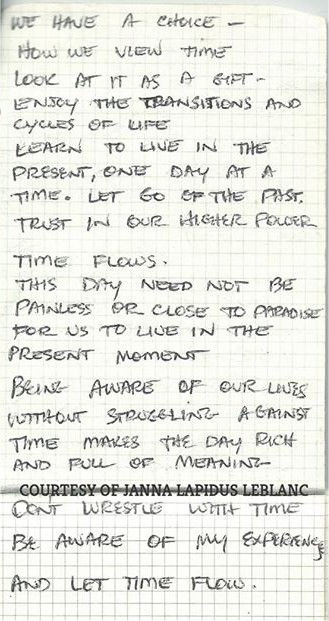 WE HAVE A CHOICE -
HOW WE VIEW TIME
LOOK AT IT AS A GIFT -
ENJOY THE TRANSITIONS AND
CYCLES OF LIFE
LEARN TO LIVE IN THE
PRESENT, ONE DAY AT A
TIME. LET GO OF THE PAST.
TRUST IN OUR HIGHER POWER
TIME FLOWS.
THIS DAY NEED NOT BE
PAINLESS OR CLOSE TO PARADISE
FOR US TO LIVE IN THE
PRESENT MOMENT
BEING AWARE OF OUR LIVES
WITHOUT STRUGGLING AGAINST
TIME MAKES THE DAY RICH
AND FULL OF MEANING
COURTESY OF JANNA LAPIDUS LEBLANC
DONT WRESTLE WITH TIME
BE AWARE OF MY EXPERIENCE
AND LET TIME FLOW.